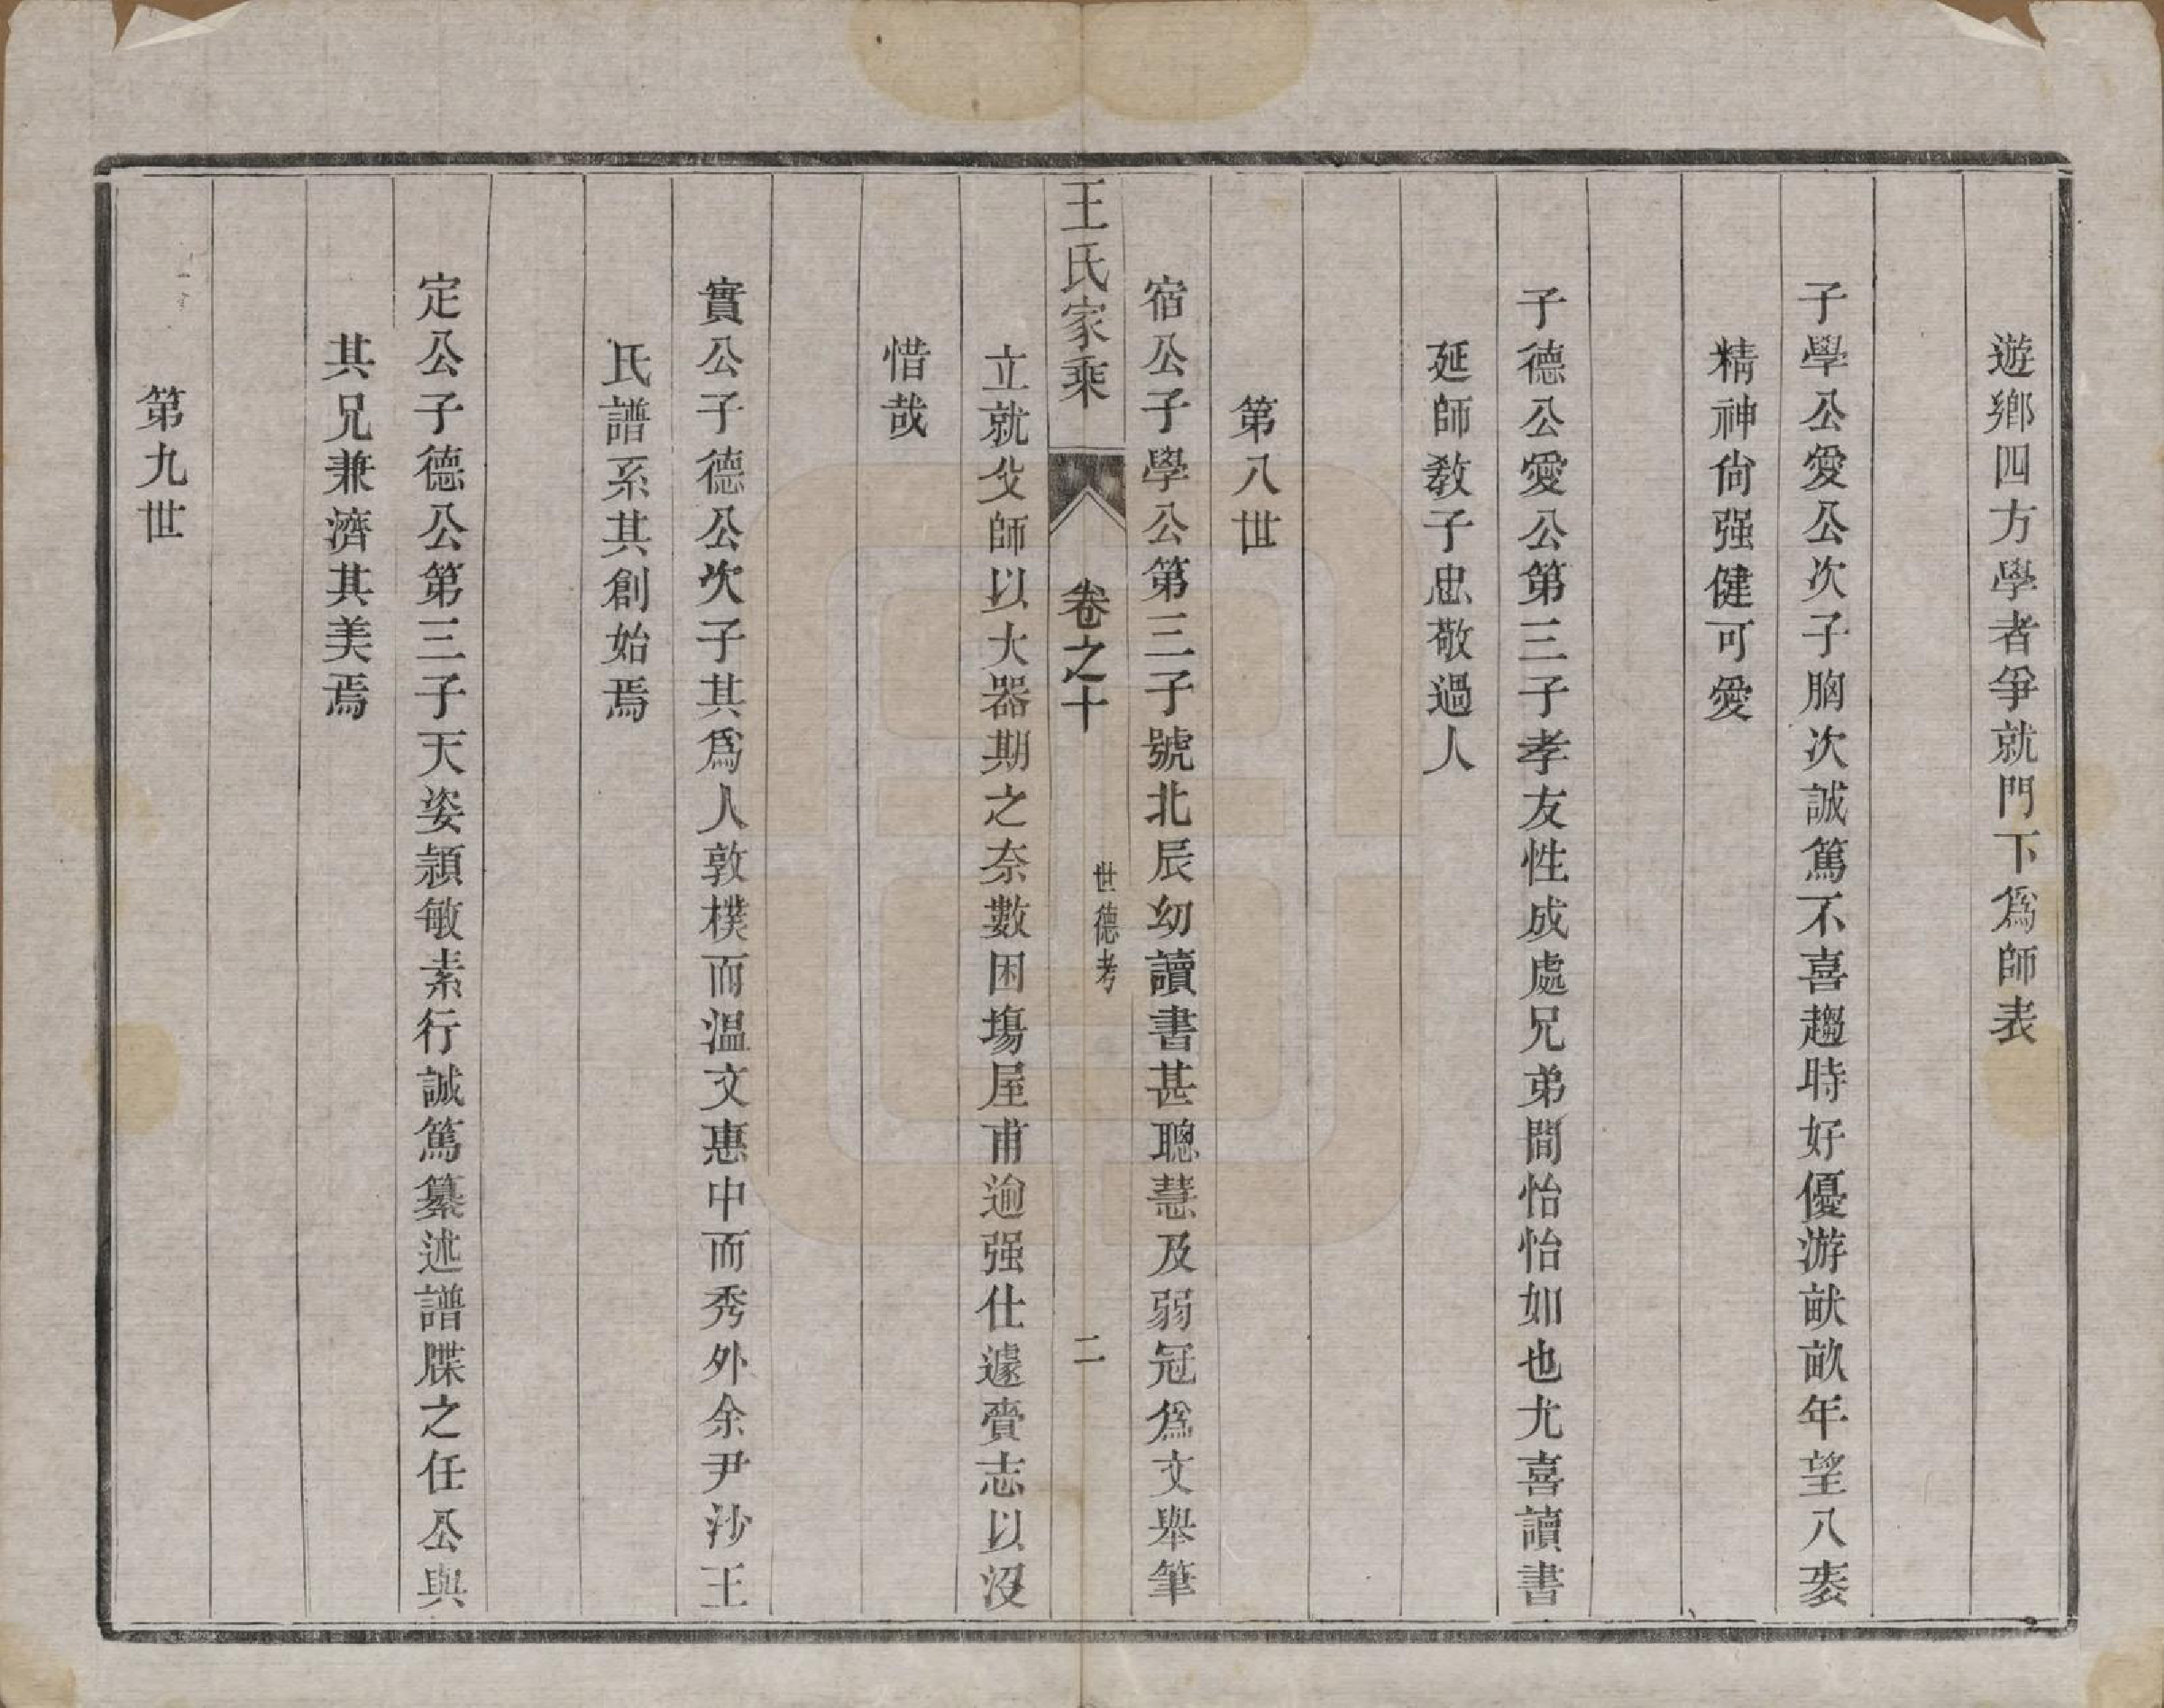 遊鄉四方學者爭就門下爲師表
子學公愛公次子胸次誠篤不喜趨時好優游畎畝年望八袠
精神尙强健可愛
子德公愛公第三子孝友性成處兄弟間怡怡如也尤喜讀書
延師敎子忠敬過人
第八世
宿公子學公第三子號北辰幼讀書甚聰慧及弱冠爲文舉筆
王氏家乘
卷之十
世德考
二
立就父師以大器期之奈數困塲屋甫逾强仕遽賷志以沒
惜哉
實公子德公次子其爲人敦樸而温文惠中而秀外余尹沙王
氏譜系其創始焉
定公子德公第三子天姿潁敏素行誠篤纂述譜牒之任公與
其兄兼濟其美焉
第九世